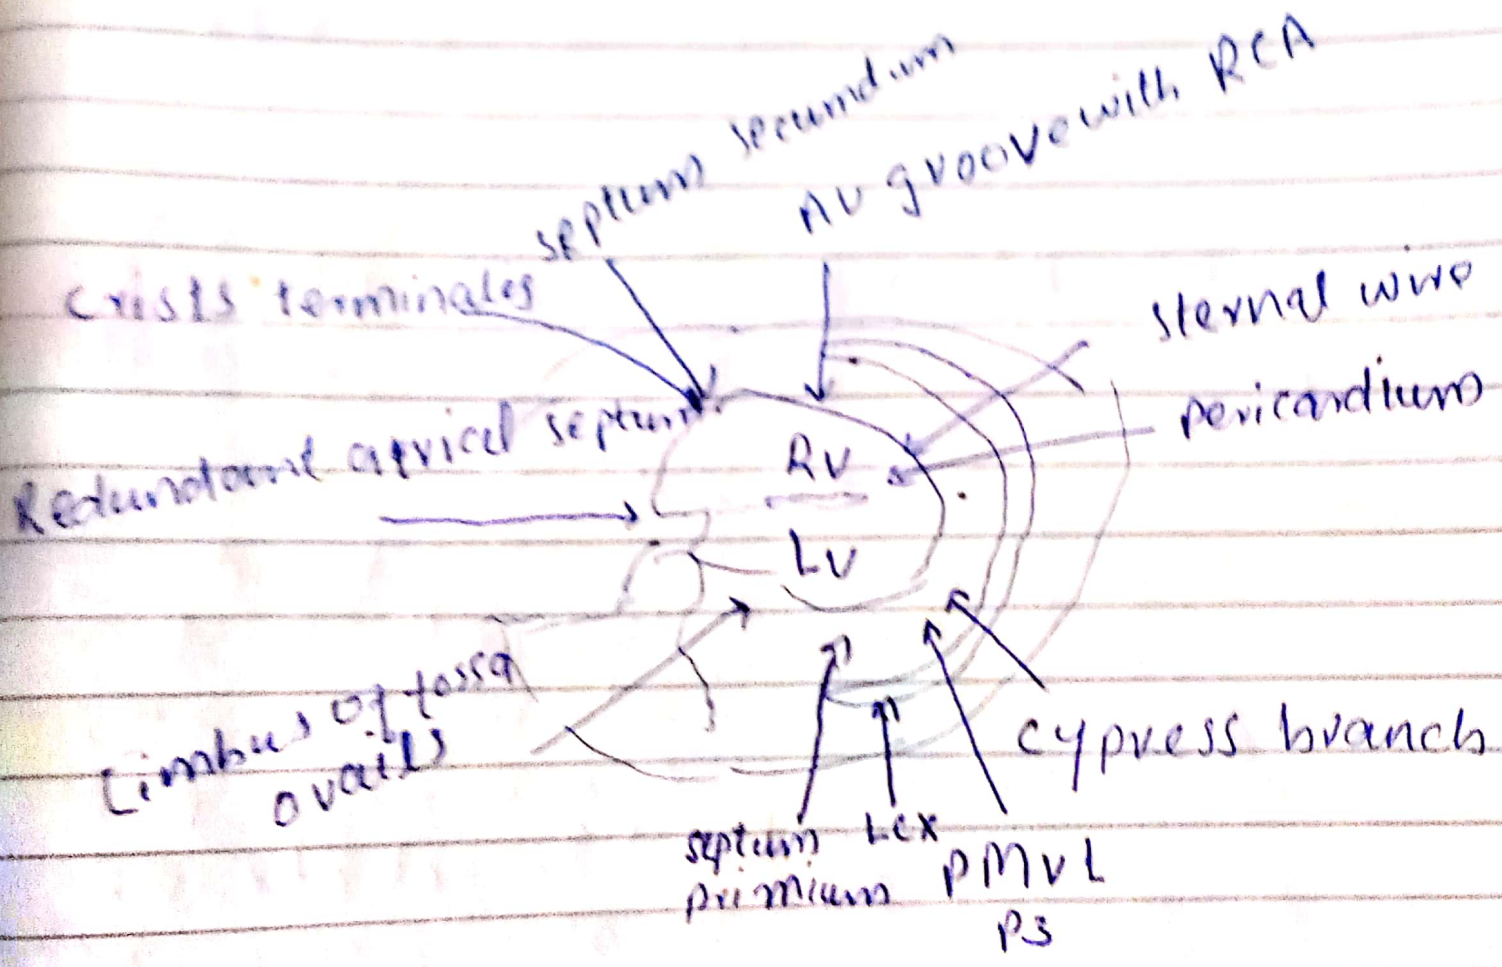 septum secumdium
AV groove with RCA
Crists terminales
sternal wire
Redundant atrical septum
pericardium
RV
LV
Limbus of fossa
ovails
cypress branch
septum
primium
LCX
PMVL
P3